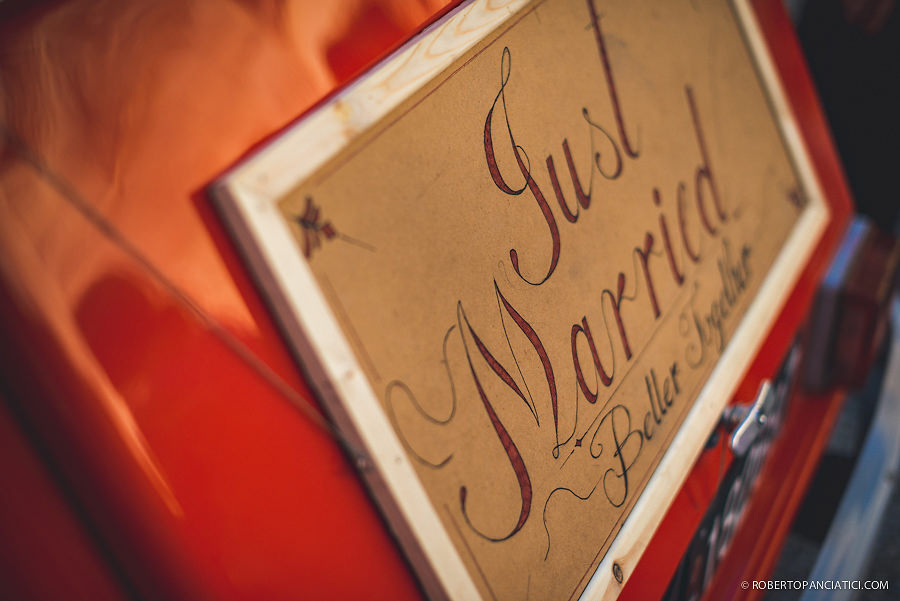 Just
Married
Better Together
© ROBERTOPANCIATICI.COM